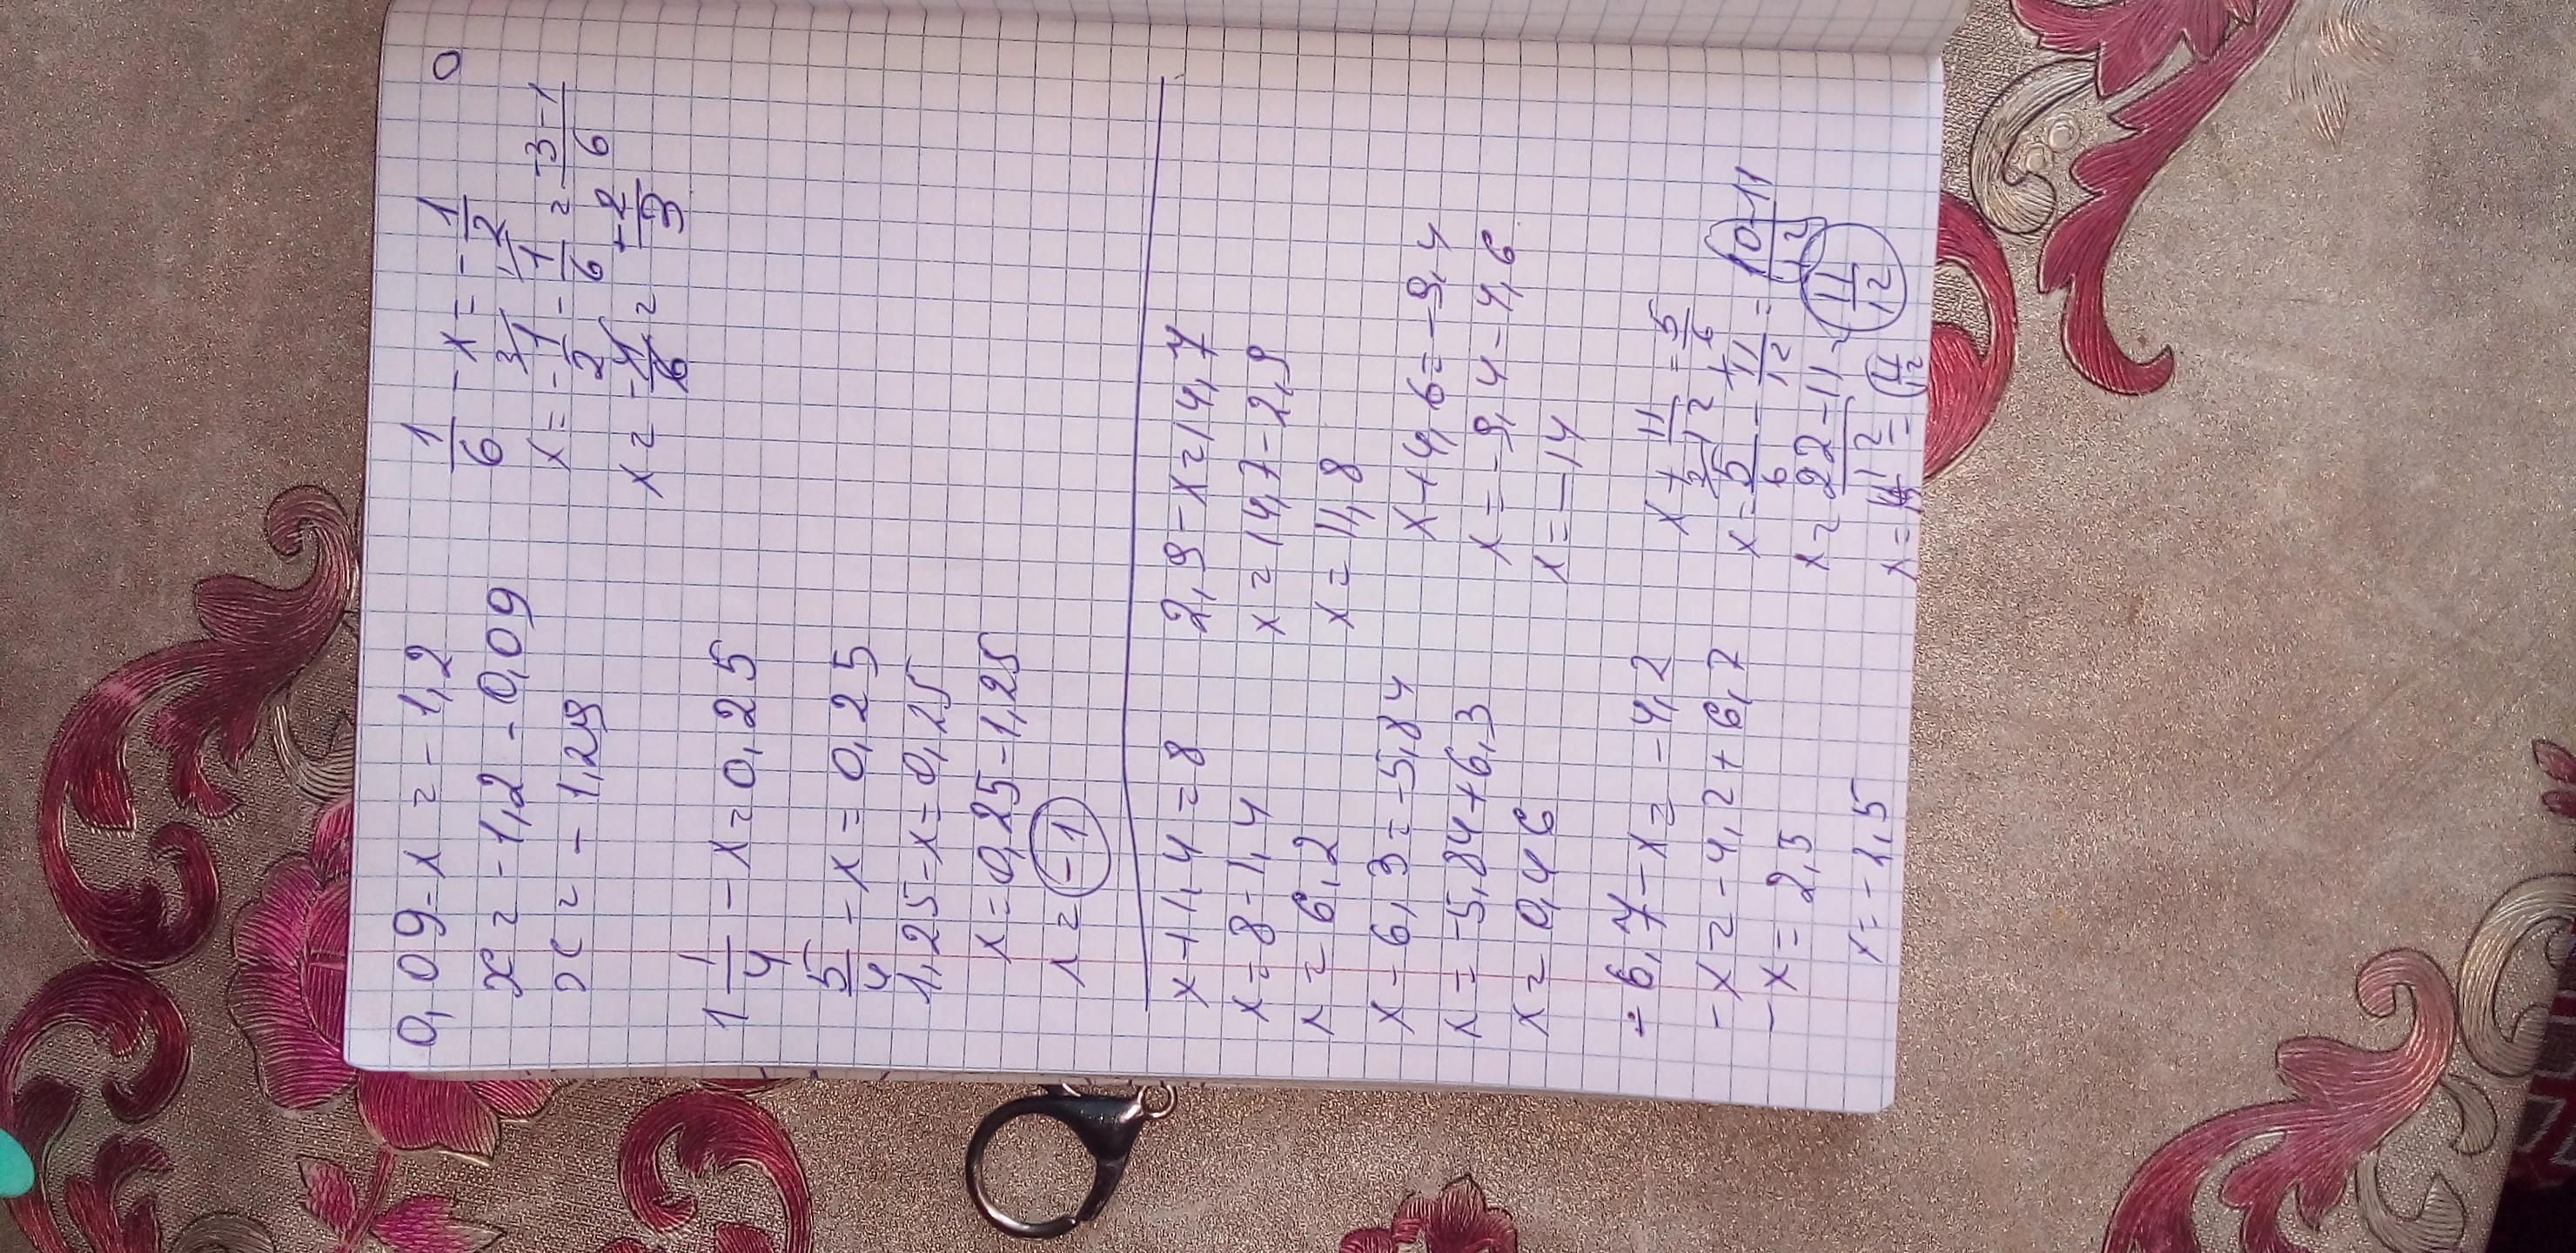 0
0,09 - x = - 1,2
x = - 1,2 - 0,09
x = - 1,29
1/6 - x = - 1/2
x = - 1/2 - 1/6 = -3-1/6
x = -4/6 = + 2/3
1 1/4 - x = 0,25
5/4 - x = 0,25
1,25 - x = 0,25
x = 0,25 - 1,25
x = -1
x + 1,4 = 8
x = 8 - 1,4
x = 6,2
2,9 - x = 14,7
x = 14,7 - 2,9
x = 11,8
x - 6,3 = -5,84
x = -5,84 + 6,3
x = 0,46
x + 4,6 = -9,4
x = -9,4 - 4,6
x = -14
- 6,7 - x = -4,2
- x = -4,2 + 6,7
- x = 2,5
x = -2,5
x + 11/12 = 5/6
x = 5/6 - 11/12 = 10-11/12
x = 22-11/12 = 11/12
x = 11/12 = 11/12